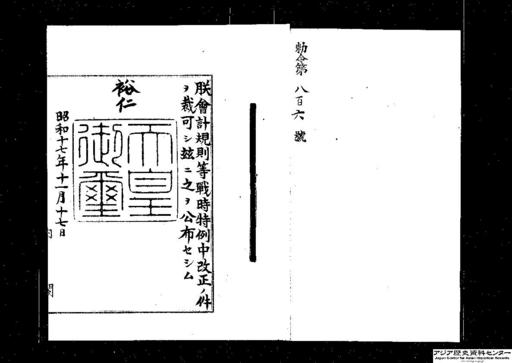 勅令第八百六號
朕會計規則等戰時特例中改正ノ件
ヲ裁可シ玆ニ之ヲ公布セシム
裕仁
天皇
御璽
昭和十七年十一月十七日
内閣
アジア歴史資料センター
Japan Center for Asian Historical Records